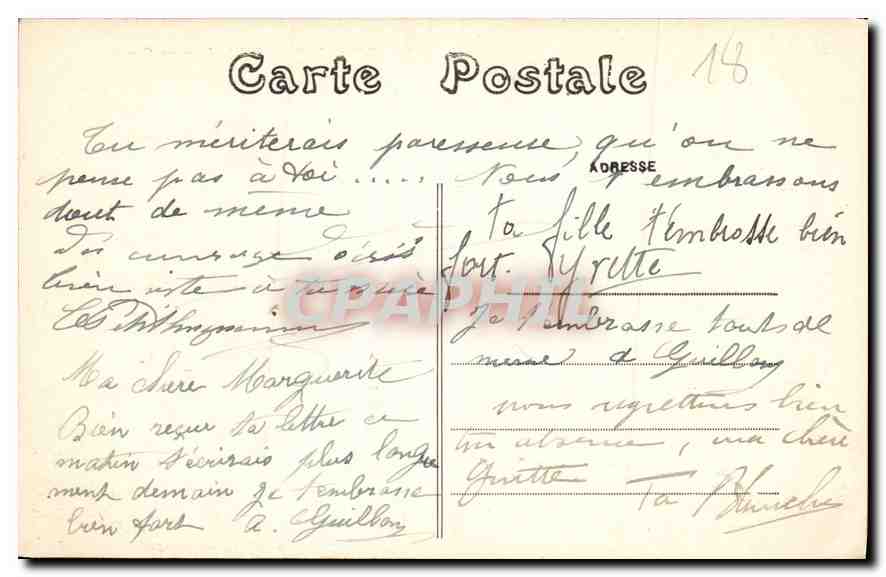 Carte Postale
18
Tu mériterais paresseuse, qu'on ne
pense pas à toi ..... Nous t'embrassons
tout de même
ADRESSE
courage
bien vite à
Ma chère Marguerite
Bien reçue ta lettre ce
matin t'écrirais plus longue
ment demain je t'embrasse
bien fort A. Guillon
ta fille t'embrosse bien
fort. Yvette
Je t'embrasse tout de
meme A Guillon
nous regrettons bien
ton absence, ma chère
Ta Blanche
CPAPHIL